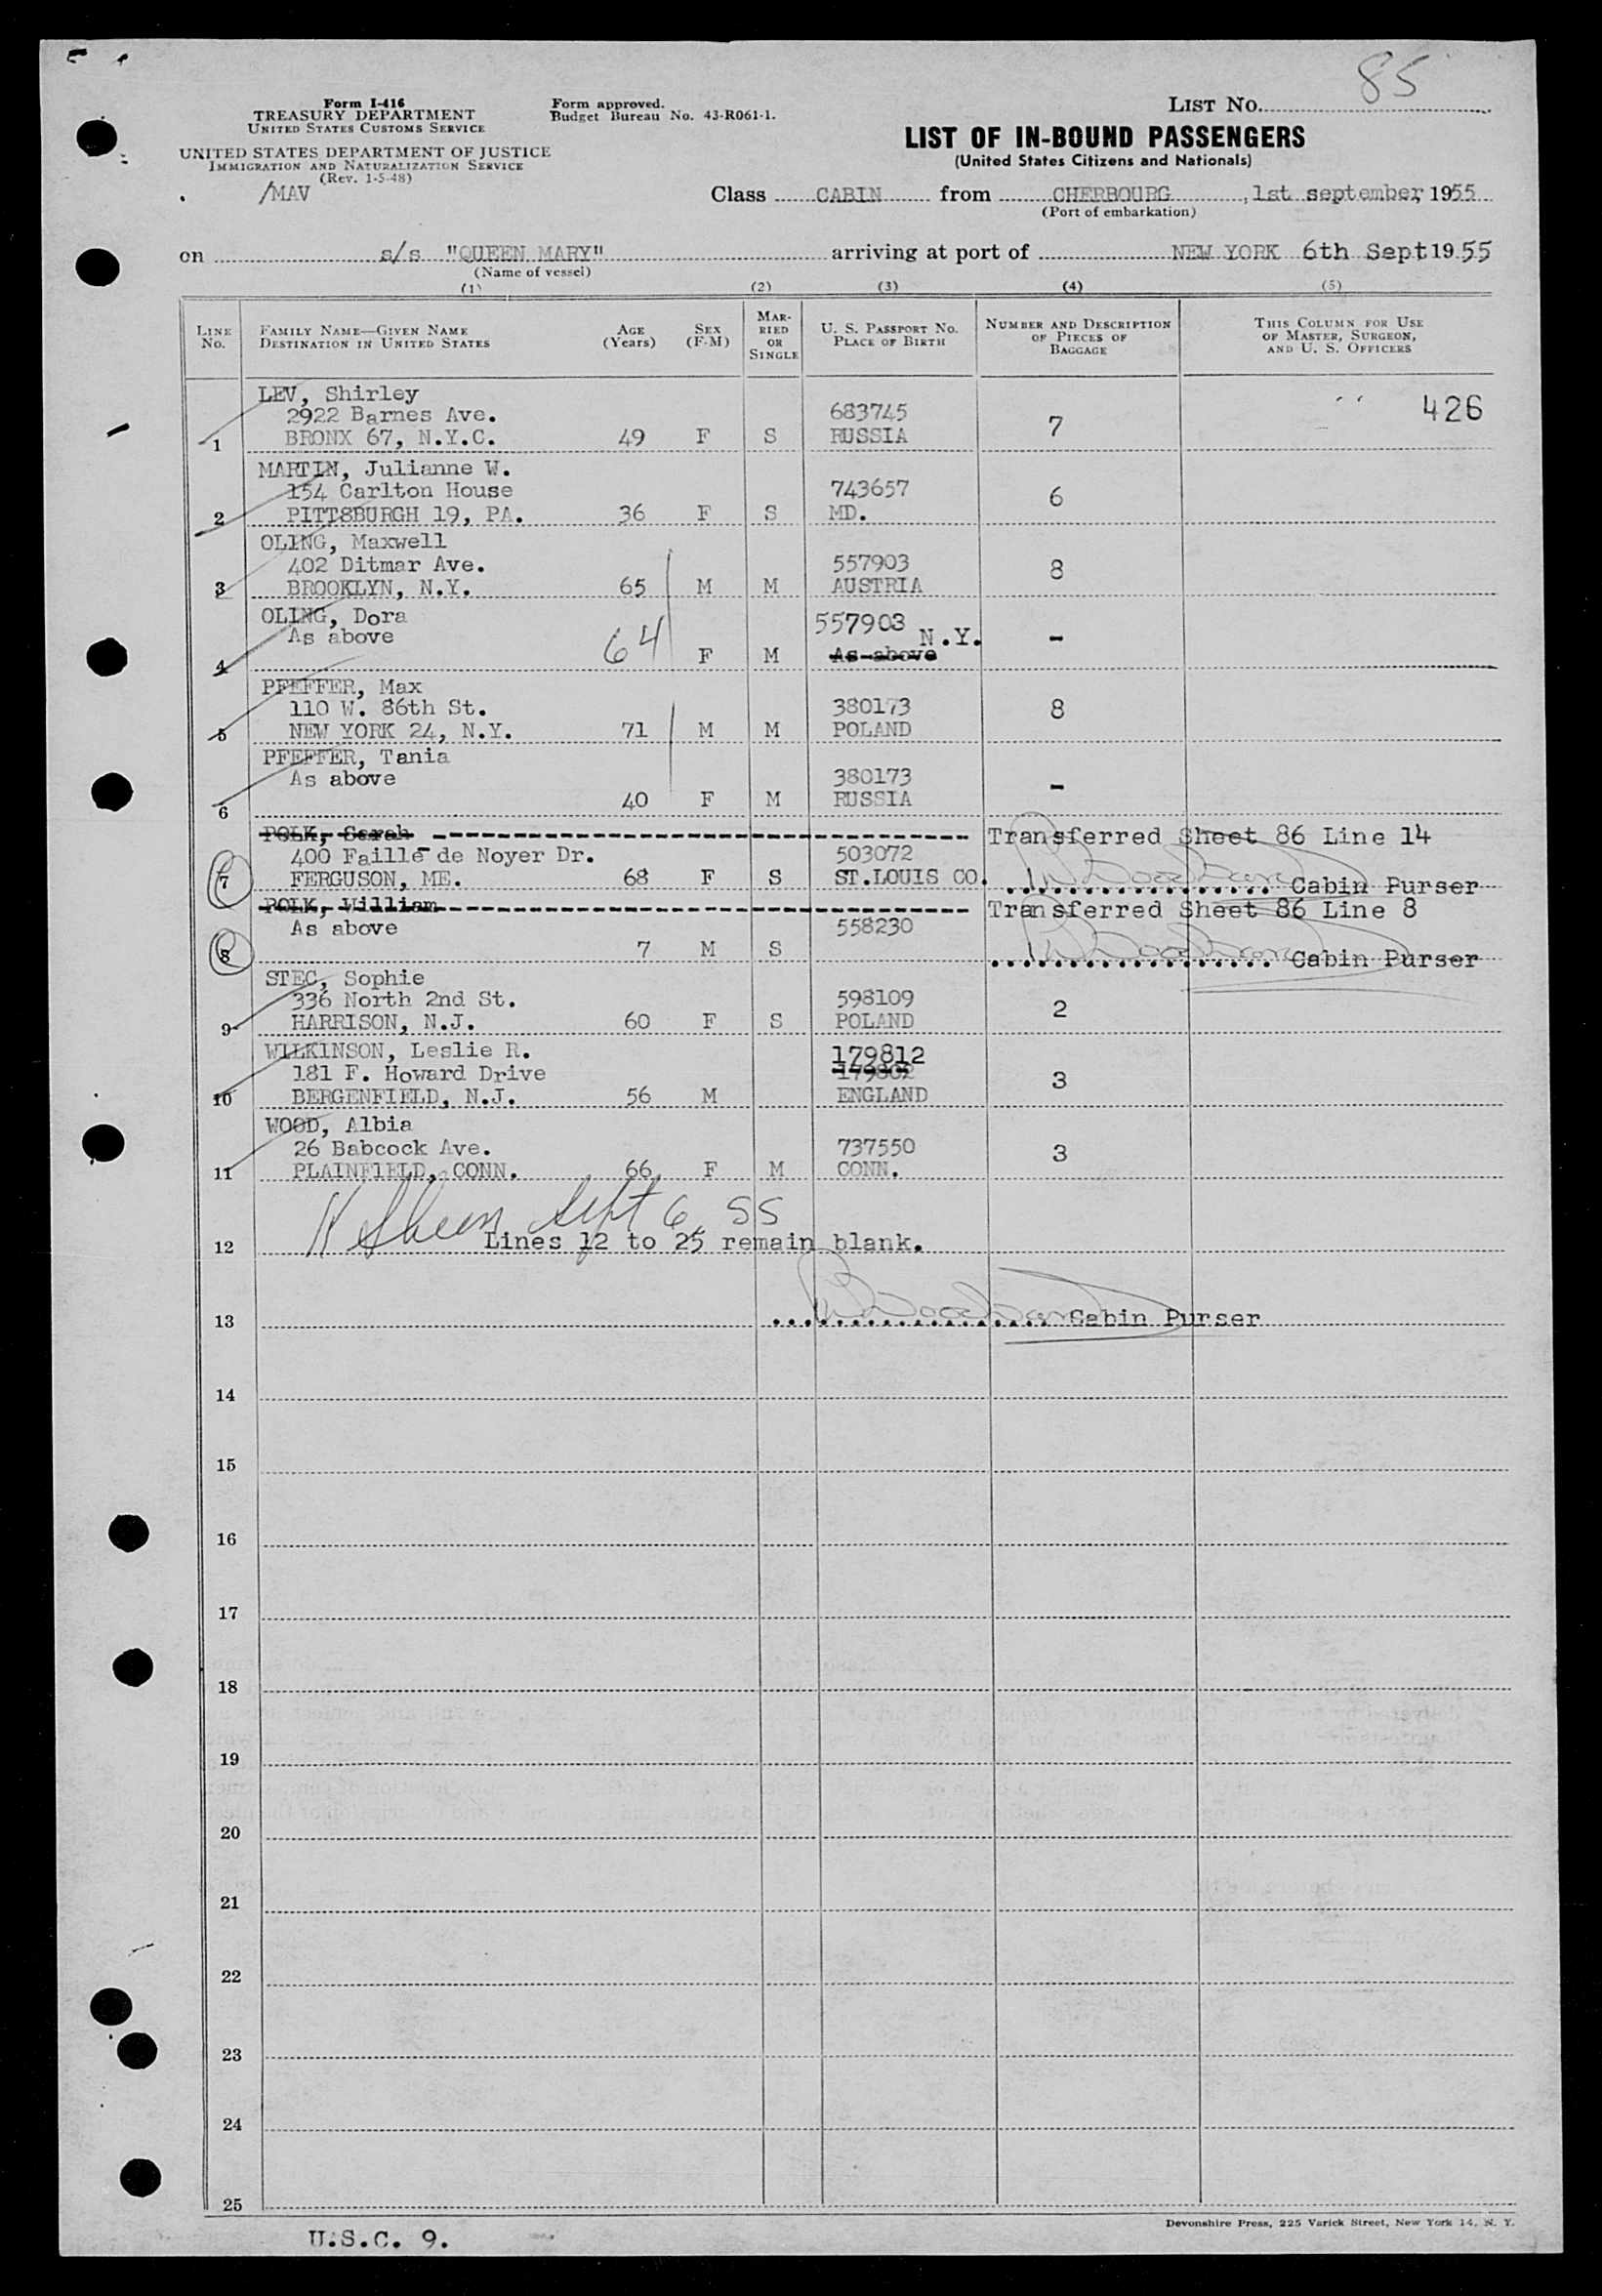 85
Form I-416
TREASURY DEPARTMENT
UNITED STATES CUSTOMS SERVICE
UNITED STATES DEPARTMENT OF JUSTICE
IMMIGRATION AND NATURALIZATION SERVICE
(Rev. 1-5-48)
/MAV
Form approved.
Budget Bureau No. 43-R061-1.
LIST NO.
LIST OF IN-BOUND PASSENGERS
(United States Citizens and Nationals)
Class CABIN from CHERBOURG, 1st september, 1955
(Port of embarkation)
on s/s "QUEEN MARY" arriving at port of NEW YORK 6th Sept 1955
(Name of vessel)
(1) (2) (3) (4) (5)
LINE NO.
FAMILY NAME—GIVEN NAME
DESTINATION IN UNITED STATES
AGE (Years)
SEX (F-M)
MARRIED OR SINGLE
U. S. PASSPORT NO.
PLACE OF BIRTH
NUMBER AND DESCRIPTION OF PIECES OF BAGGAGE
THIS COLUMN FOR USE OF MASTER, SURGEON, AND U. S. OFFICERS
LEV, Shirley
2922 Barnes Ave. 683745 7 426
1 BRONX 67, N.Y.C. 49 F S RUSSIA
MARTIN, Julianne W.
154 Carlton House 743657 6
2 PITTSBURGH 19, PA. 36 F S MD.
OLING, Maxwell
402 Ditmar Ave. 557903 8
3 BROOKLYN, N.Y. 65 M M AUSTRIA
OLING, Dora 557903
As above 64 N.Y. -
4 F M As above
PFEFFER, Max
110 W. 86th St. 380173 8
5 NEW YORK 24, N.Y. 71 M M POLAND
PFEFFER, Tania
As above 380173 -
6 40 F M RUSSIA
POLK, Sarah Transferred Sheet 86 Line 14
400 Faille de Noyer Dr. 503072
7 FERGUSON, ME. 68 F S ST.LOUIS CO. Cabin Purser
POLK, William Transferred Sheet 86 Line 8
As above 558230
8 7 M S Cabin Purser
STEC, Sophie
336 North 2nd St. 598109 2
9 HARRISON, N.J. 60 F S POLAND
WILKINSON, Leslie R. 179812
181 F. Howard Drive 179802 3
10 BERGENFIELD, N.J. 56 M ENGLAND
WOOD, Albia
26 Babcock Ave. 737550 3
11 PLAINFIELD, CONN. 66 F M CONN.
Sept 6, 55
12 Lines 12 to 25 remain blank.
13 Cabin Purser
14
15
16
17
18
19
20
21
22
23
24
25
Devonshire Press, 225 Varick Street, New York 14, N. Y.
U.S.C. 9.